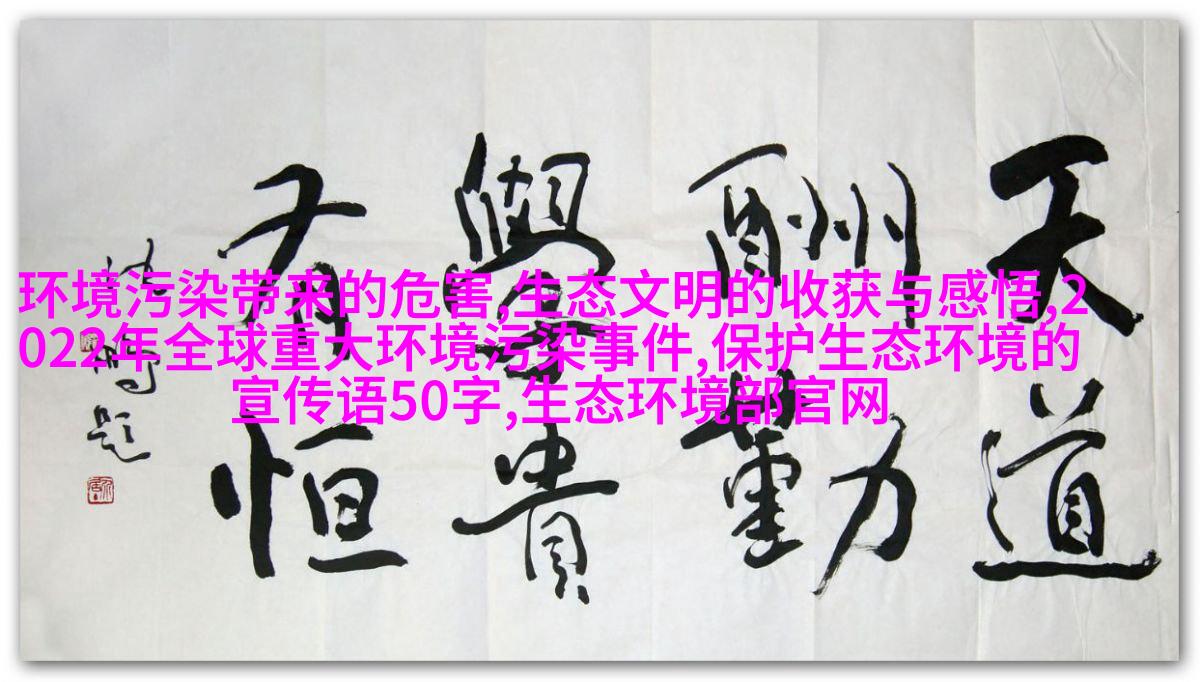 环境污染带来的危害,生态文明的收获与感悟,2
022年全球重大环境污染事件,保护生态环境的
宣传语50字,生态环境部官网
天道
酬勤
學貴
有恒
沈鹏题